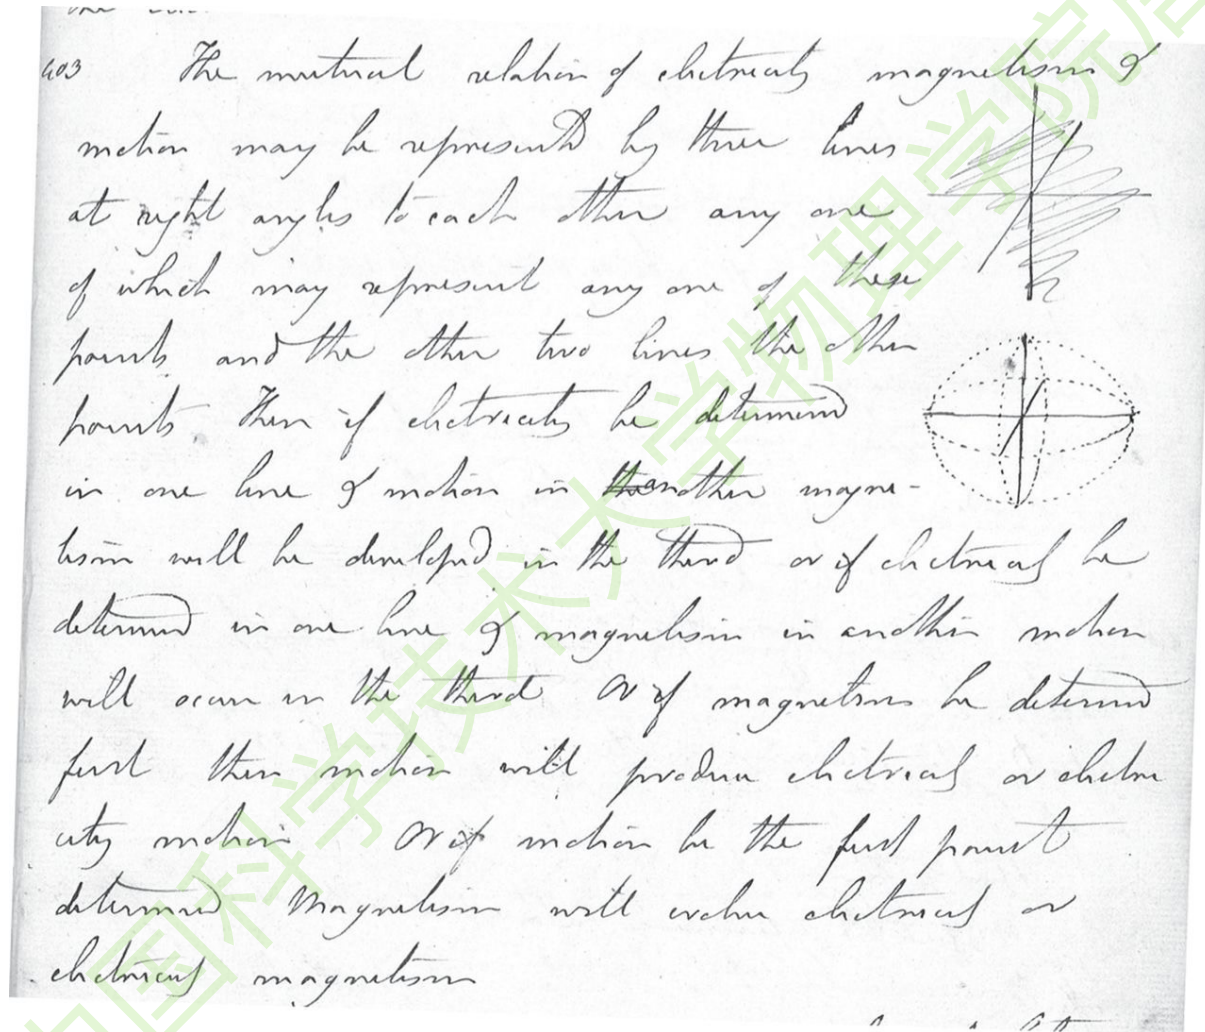 403 The mutual relation of electricity magnetism &
motion may be represented by three lines
at right angles to each other any one
of which may represent any one of these
points and the other two lines the other
points Then if electricity be determined
in one line & motion in another magne-
tism will be developed in the third or if electricity be
determined in one line & magnetism in another motion
will occur in the third Or if magnetism be determined
first then motion will produce electricity or electri
city motion Or if motion be the first point
determined Magnetism will evolve electricity or
electricity magnetism
中国科学技术大学物理学院